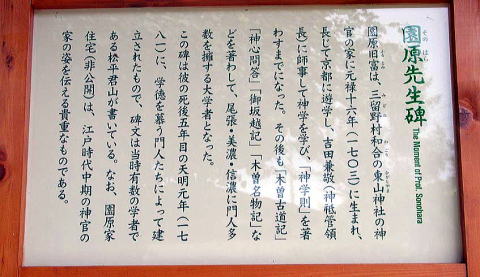 園原先生碑
その はら
The Moment of Prof. Sonohara
園原旧富は、三留野村和合の東山神社の神
官の家に元禄十六年(一七〇三)に生まれ、
長じて京都に遊学し、吉田兼敬(神祗管領
長)に師事して神学を学び、「神学則」を著
わすまでになった。その後も「木曽古道記」
「神心問答」「御坂越記」「木曽名物記」な
どを著わして、尾張・美濃・信濃に門人多
数を擁する大学者となった。
この碑は彼の死後五年目の天明元年(一七
八一)に、学徳を慕う門人たちによって建
立されたもので、碑文は当時有数の学者で
ある松平君山が書いている。なお、園原家
住宅(非公開)は、江戸時代中期の神官の
家の姿を伝える貴重なものである。